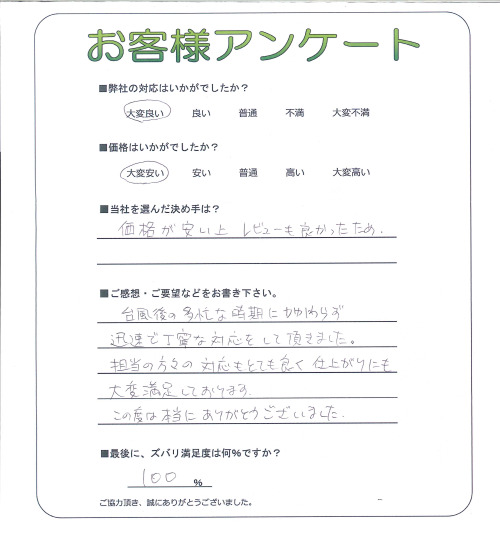 お客様アンケート
■弊社の対応はいかがでしたか？
大変良い 良い 普通 不満 大変不満
■価格はいかがでしたか？
大変安い 安い 普通 高い 大変高い
■当社を選んだ決め手は？
価格が安い上 レビューも良かったため.
■ご感想・ご要望などをお書き下さい。
台風後の多忙な時期にかかわらず
迅速で丁寧な対応をして頂きました。
担当の方々の対応もとても良く仕上がりにも
大変満足しております.
この度は本当にありがとうございました.
■最後に、ズバリ満足度は何%ですか？
100 %
ご協力頂き、誠にありがとうございました。